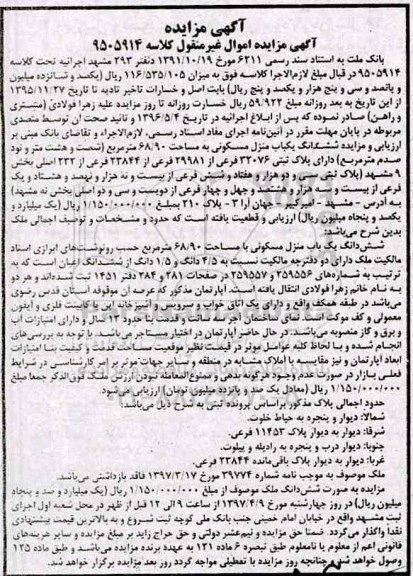 آگهی مزایده
آگهی مزایده اموال غیرمنقول کلاسه ۹۵۰۵۹۱۴
بانک ملت به استناد سند رسمی ۶۲۱۱ مورخ ۱۳۹۱/۱۰/۱۹ دفتر ۲۹۳ مشهد اجرائیه تحت کلاسه
۹۵۰۵۹۱۴ در قبال مبلغ لازم‌الاجرا کلاسه فوق به میزان ۱۱۶/۵۳۵/۱۰۵ ریال (یکصد و شانزده میلیون
و پانصد و سی و پنج هزار و یکصد و پنج ریال) بابت اصل و خسارات تاخیر تادیه تا تاریخ ۱۳۹۵/۱۱/۲۷
از این تاریخ به بعد روزانه مبلغ ۵۹/۹۲۳ ریال خسارت روزانه تا روز مزایده علیه زهرا فولادی (مشتری
و راهن) صادر نموده که پس از ابلاغ اجرائیه در تاریخ ۱۳۹۶/۵/۴ و تائید صحت آن توسط متصدی
مربوطه در پایان مهلت مقرر در آئین‌نامه اجرای مفاد اسناد رسمی، لازم‌الاجراء و تقاضای بانک مبنی بر
ارزیابی و مزایده ششدانگ یکباب منزل مسکونی به مساحت ۶۸/۹۰ مترمربع (شصت و هشت متر و نود
صدم مترمربع) دارای پلاک ثبتی ۳۲۰۷۶ فرعی از ۲۹۹۸۱ فرعی از ۲۳۸۴۴ فرعی از ۲۳۲ اصلی بخش
۹ مشهد (پلاک ثبتی سی و دو هزار و هفتاد و شش فرعی از بیست و نه هزار و نهصد و هشتاد و یک
فرعی از بیست و سه هزار و هشتصد و چهل و چهار فرعی از دویست و سی و دو اصلی بخش نه مشهد)
به آدرس - مشهد - امیرکبیر جهان آرا ۳ - پلاک ۲۱۰ بمبلغ ۱/۱۵۰/۰۰۰/۰۰۰ ریال (یک میلیارد و
یکصد و پنجاه میلیون ریال) ارزیابی و قطعیت یافته است که حدود و مشخصات و توصیف اجمالی ملک
بدین شرح می‌باشد:
شش‌دانگ یک باب منزل مسکونی با مساحت ۶۸/۹۰ مترمربع حسب رونوشت‌های ابرازی اسناد
مالکیت ملک دارای دو دفترچه مالکیت نسبت به ۴/۵ دانگ و ۱/۵ دانگ از ششدانگ اعیان است که به
ترتیب به شماره‌های ۲۵۹۵۵۶ و ۲۵۹۵۵۷ در صفحات ۲۸۱ و ۲۸۴ دفتر ۱۴۵۱ ثبت شده‌اند و هر دو
به نام خانم زهرا فولادی انتقال یافته است. آپارتمان مذکور که عرصه آن موقوفه آستان قدس رضوی
می‌باشد در طبقه همکف واقع و دارای یک اتاق خواب و سرویس و آشپزخانه اپن با کابینت فلزی و آیفون
معمولی و کف موکت است. نمای ساختمان آجر سه سانت و قدمت بنا حدود ۱۳ سال و دارای امتیازات آب
و برق و گاز منصوبه می‌باشد. در حال حاضر آپارتمان در اختیار مستاجر می‌باشد. با توجه به بررسی‌های
انجام شده و با لحاظ کلیه عوامل موثر در قیمت نظیر موقعیت مساحت قدمت و کیفیت بنا امتیازات
ابعاد آپارتمان و نیز مقایسه با املاک مشابه در منطقه و سایر جهات موثر بر امر کارشناسی در شرایط
فعلی بازار در صورت عدم وجود هرگونه بدهی و ممنوع‌المعامله نبودن ارزش ملک فوق‌الذکر جمعا مبلغ
۱/۱۵۰/۰۰۰/۰۰۰ ریال (معادل یک صد و پانزده میلیون تومان) ارزیابی می‌شود.
حدود اجمالی پلاک مذکور براساس پرونده ثبتی به شرح ذیل می‌باشد.
شمالا: دیوار و پنجره به حیاط خلوت.
شرقا: دیوار به دیوار پلاک ۱۱۴۵۳ فرعی.
جنوبا: دیوار درب و پنجره به راه‌پله و پیلوت.
غربا: دیوار به دیوار پلاک باقی‌مانده ۲۳۸۴۴ فرعی.
ملک موصوف به موجب نامه شماره ۳۹۷۷۴ مورخ ۱۳۹۷/۳/۱۷ فاقد بازداشتی می‌باشد.
مزایده به صورت شش‌دانگ ملک موصوف از مبلغ ۱/۱۵۰/۰۰۰/۰۰۰ ریال (یک میلیارد و صد و پنجاه
میلیون ریال) در روز چهارشنبه مورخ ۱۳۹۷/۴/۹ از ساعت ۹ الی ۱۲ قبل از ظهر در محل شعبه اول اجرای
ثبت مشهد واقع در خیابان امام خمینی جنب بانک ملی کوچه ثبت شروع و به بالاترین قیمت پیشنهادی
نقدا واگذار می‌گردد. ضمنا حق مزایده و نیم‌عشر دولتی و حق حراج زاید بر مبلغ مزایده و سایر هزینه‌های
قانونی اعم از معلوم یا نامعلوم طبق تبصره ۶ ماده ۱۲۱ به عهده برنده مزایده می‌باشد و طبق ماده ۱۲۵
وصول خواهد شد. چنانچه روز مزایده با تعطیلی مواجه گردد روز بعد مزایده برگزار خواهد شد.